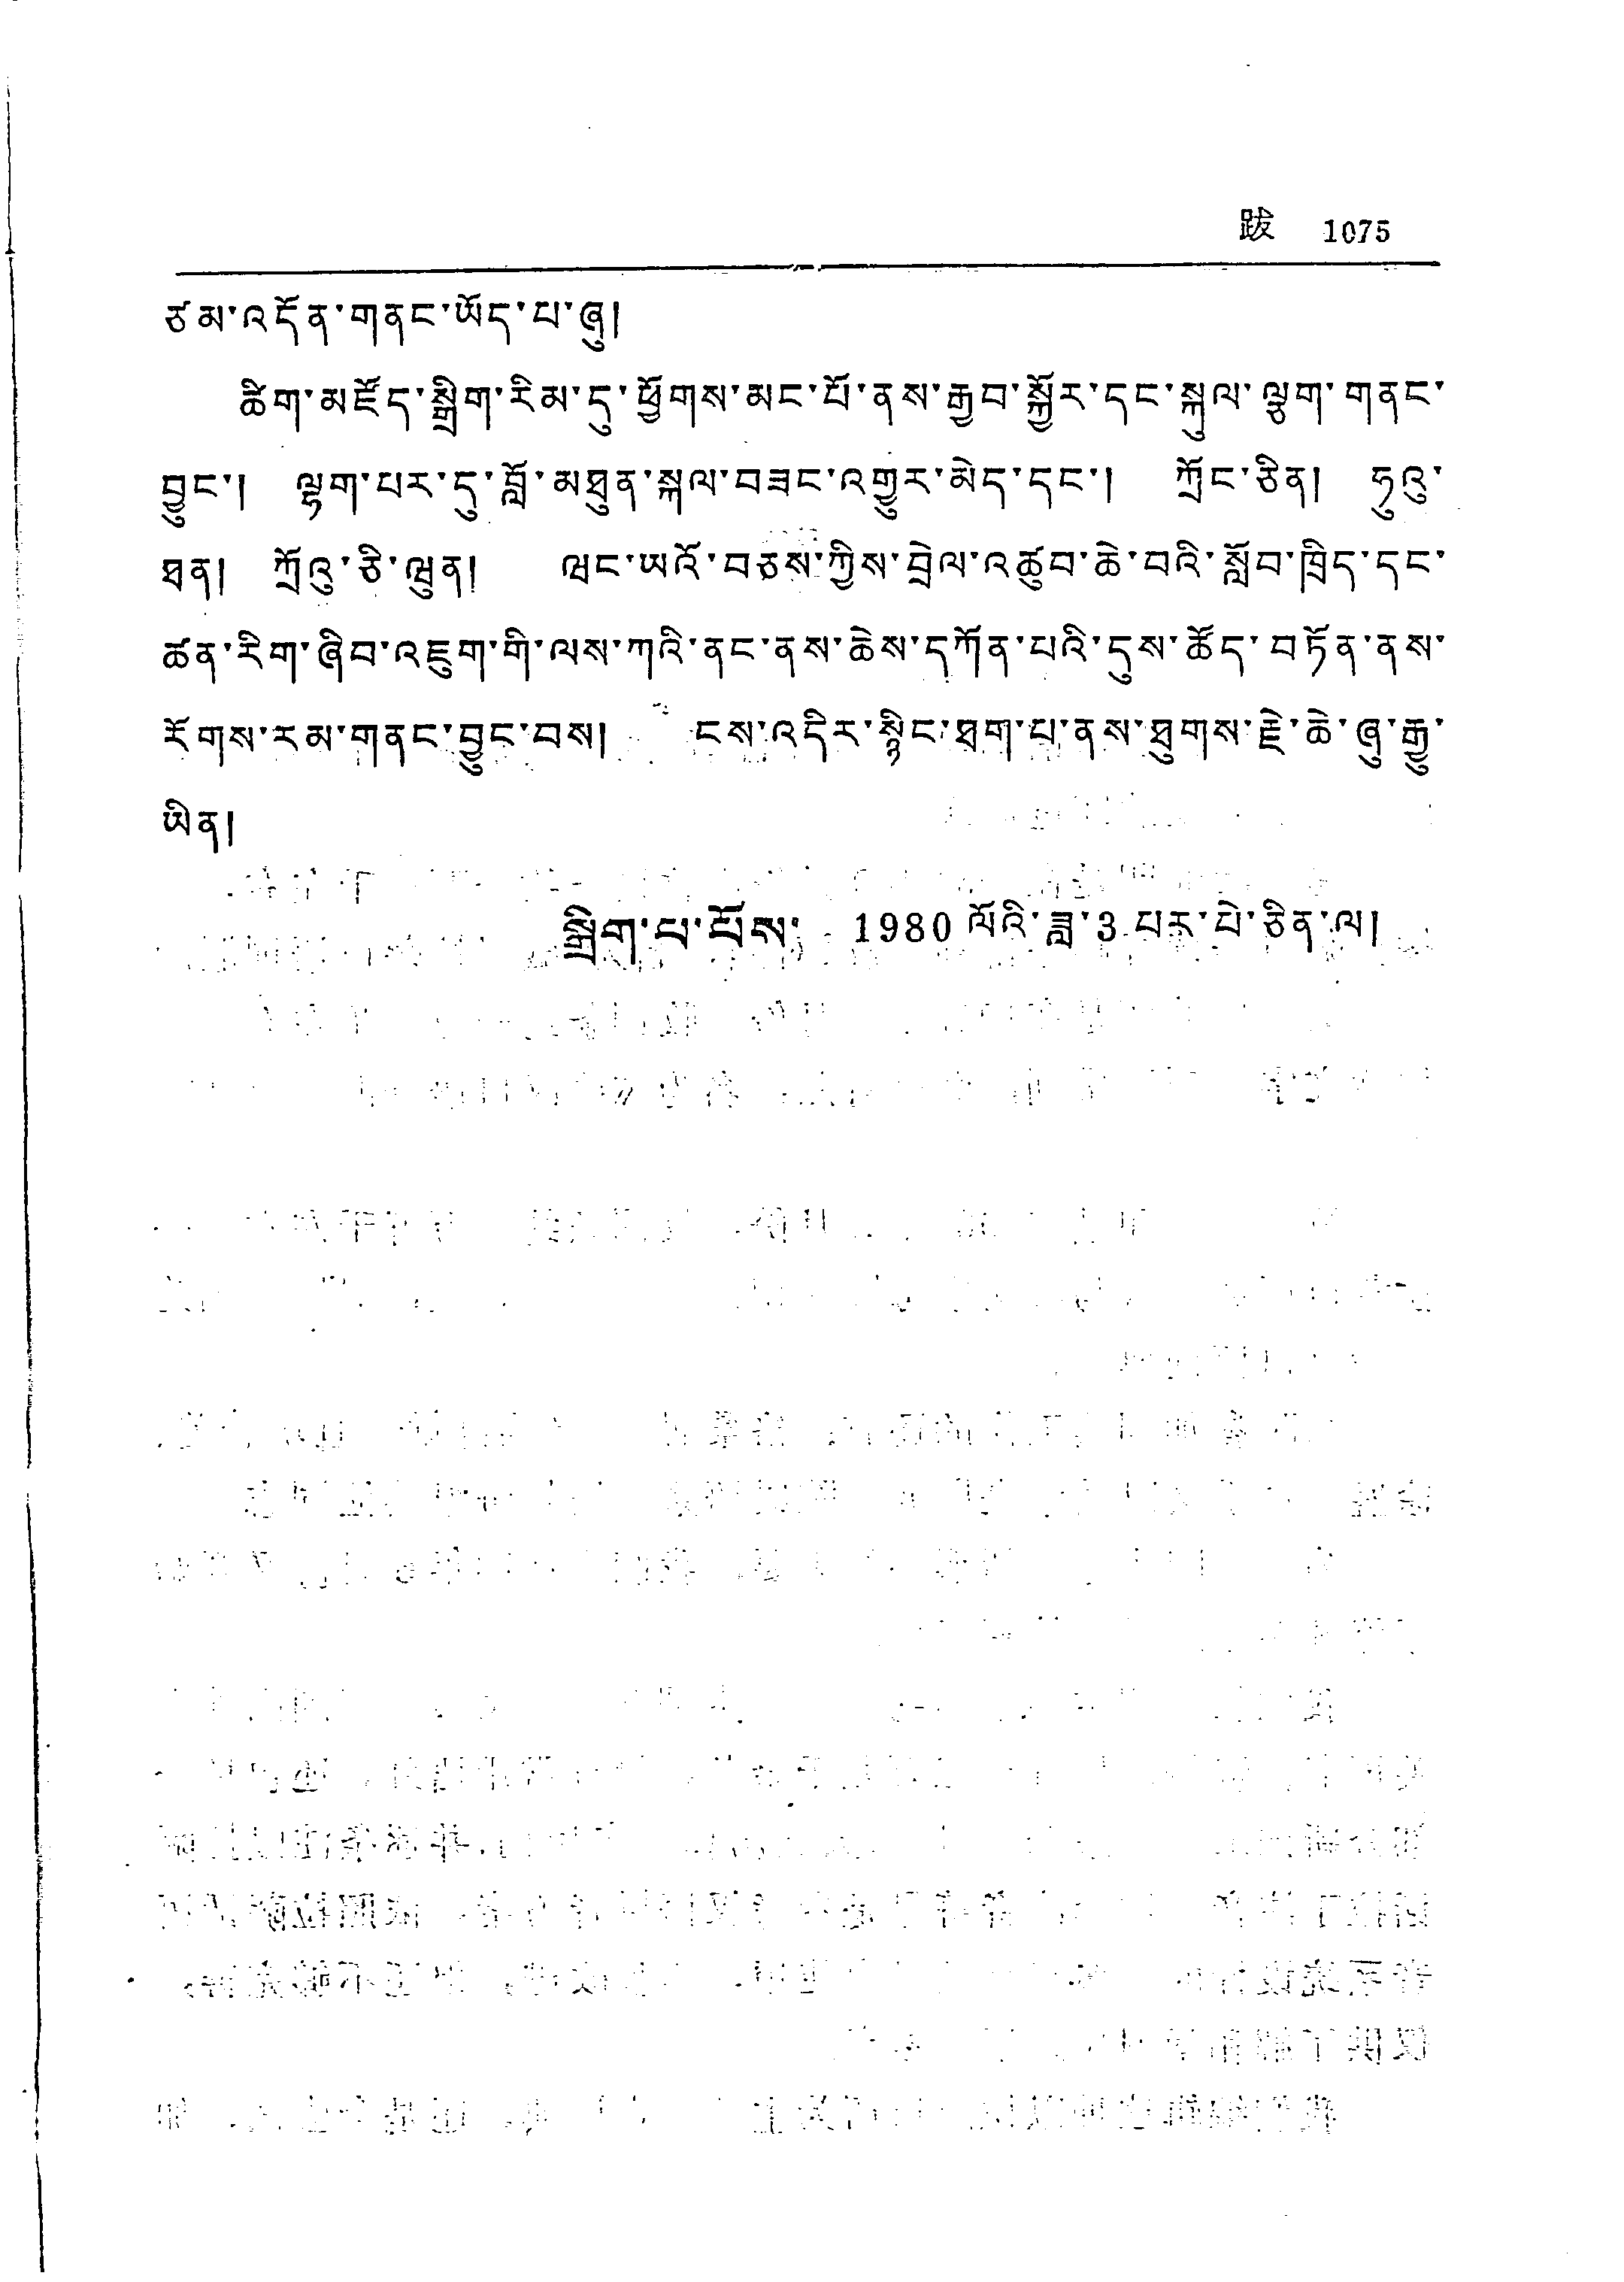 跋 1075
ཙམ་འདོན་གནང་ཡོད་པ་ཞུ།
ཚིག་མཛོད་སྒྲིག་རིམ་དུ་ཕྱོགས་མང་པོ་ནས་རྒྱབ་སྐྱོར་དང་སྐུལ་ལྕག་གནང་
བྱུང་། ལྷག་པར་དུ་བློ་མཐུན་སྐལ་བཟང་འགྱུར་མེད་དང་། ཀྲོང་ཅིན། ཧུའུ་
ཐན། ཀྲོའུ་ཅི་ཝུན། ཝང་ཡའོ་བཅས་ཀྱིས་བྲེལ་འཚུབ་ཆེ་བའི་སློབ་ཁྲིད་དང་
ཚན་རིག་ཞིབ་འཇུག་གི་ལས་ཀའི་ནང་ནས་ཆེས་དཀོན་པའི་དུས་ཚོད་བཏོན་ནས་
རོགས་རམ་གནང་བྱུང་བས། ངས་འདིར་སྙིང་ཐག་པ་ནས་ཐུགས་རྗེ་ཆེ་ཞུ་རྒྱུ་
ཡིན།
སྒྲིག་པ་པོས་ 1980 ལོའི་ཟླ་3 པར་པེ་ཅིན་ལ།